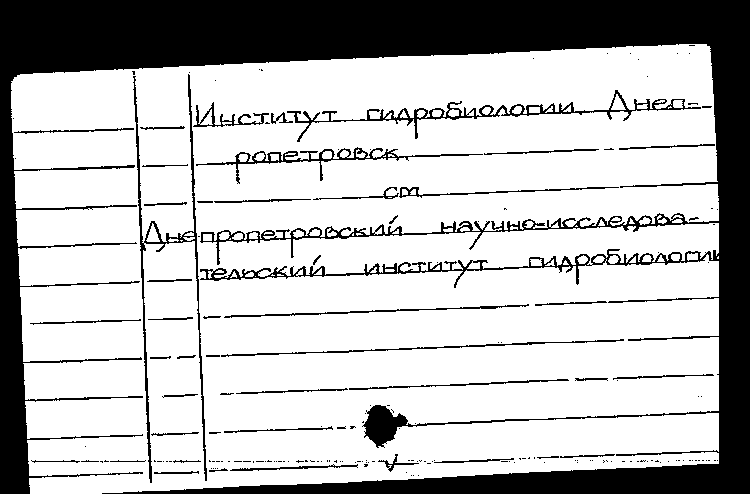 Институт гидробиологии. Днеп-
ропетровск.
см.
Днепропетровский научно-исследова-
тельский институт гидробиологии